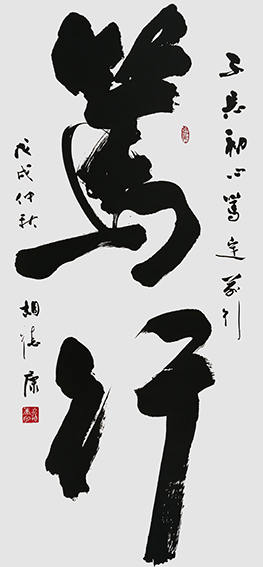 篤行
不忘初心篤定前行
戊戌仲秋